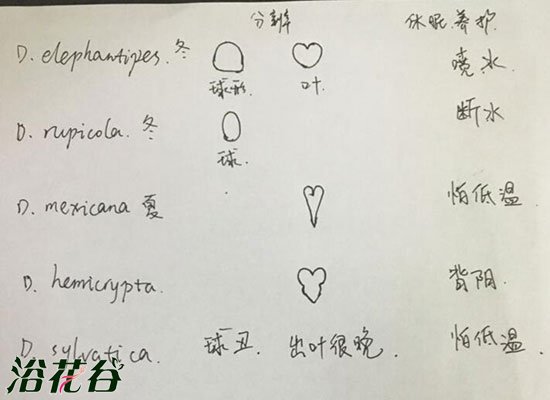 分辨 休眠养护
D. elephantipes. 冬 喷水
球形 叶
断水
D. rupicola. 冬
球.
D. mexicana 夏 怕低温
D. hemicrypta. 背阳.
D. sylvatica. 球丑. 出叶很晚. 怕低温.
浴花谷